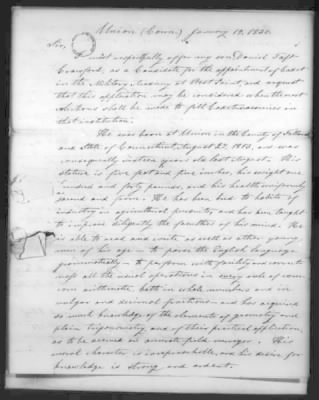 Union (Conn.) January 19, 1830.
Sir,
I most respectfully offer my son Daniel Taft
Crawford, as a Candidate for the appointment of Cadet
in the Military Academy at West Point and request
that this application may be considered when the next
selections shall be made to fill Cadet vacancies in
that institution.
He was born at Union in the County of Tolland,
and State of Connecticut, August 27, 1813, and was
consequently sixteen years old last August. His
stature is five feet and five inches, his weight one
hundred and forty pounds, and his health uniformly
sound and firm. He has been bred to habits of
industry in agricultural pursuits, and has been taught
to improve diligently the faculties of his mind. He
is able to read and write as well as other young
of his age - to parse the English language
grammatically - to perform with facility and correct-
ness all the usual operations in every rule of com-
mon arithmetic, both in whole numbers and in
vulgar and decimal fractions - and has acquired
so much knowledge of the elements of geometry and
plain trigonometry, and of their practical application,
as to be an accurate field surveyor. His
moral character is irreproachable, and his desire for
knowledge is strong and ardent.